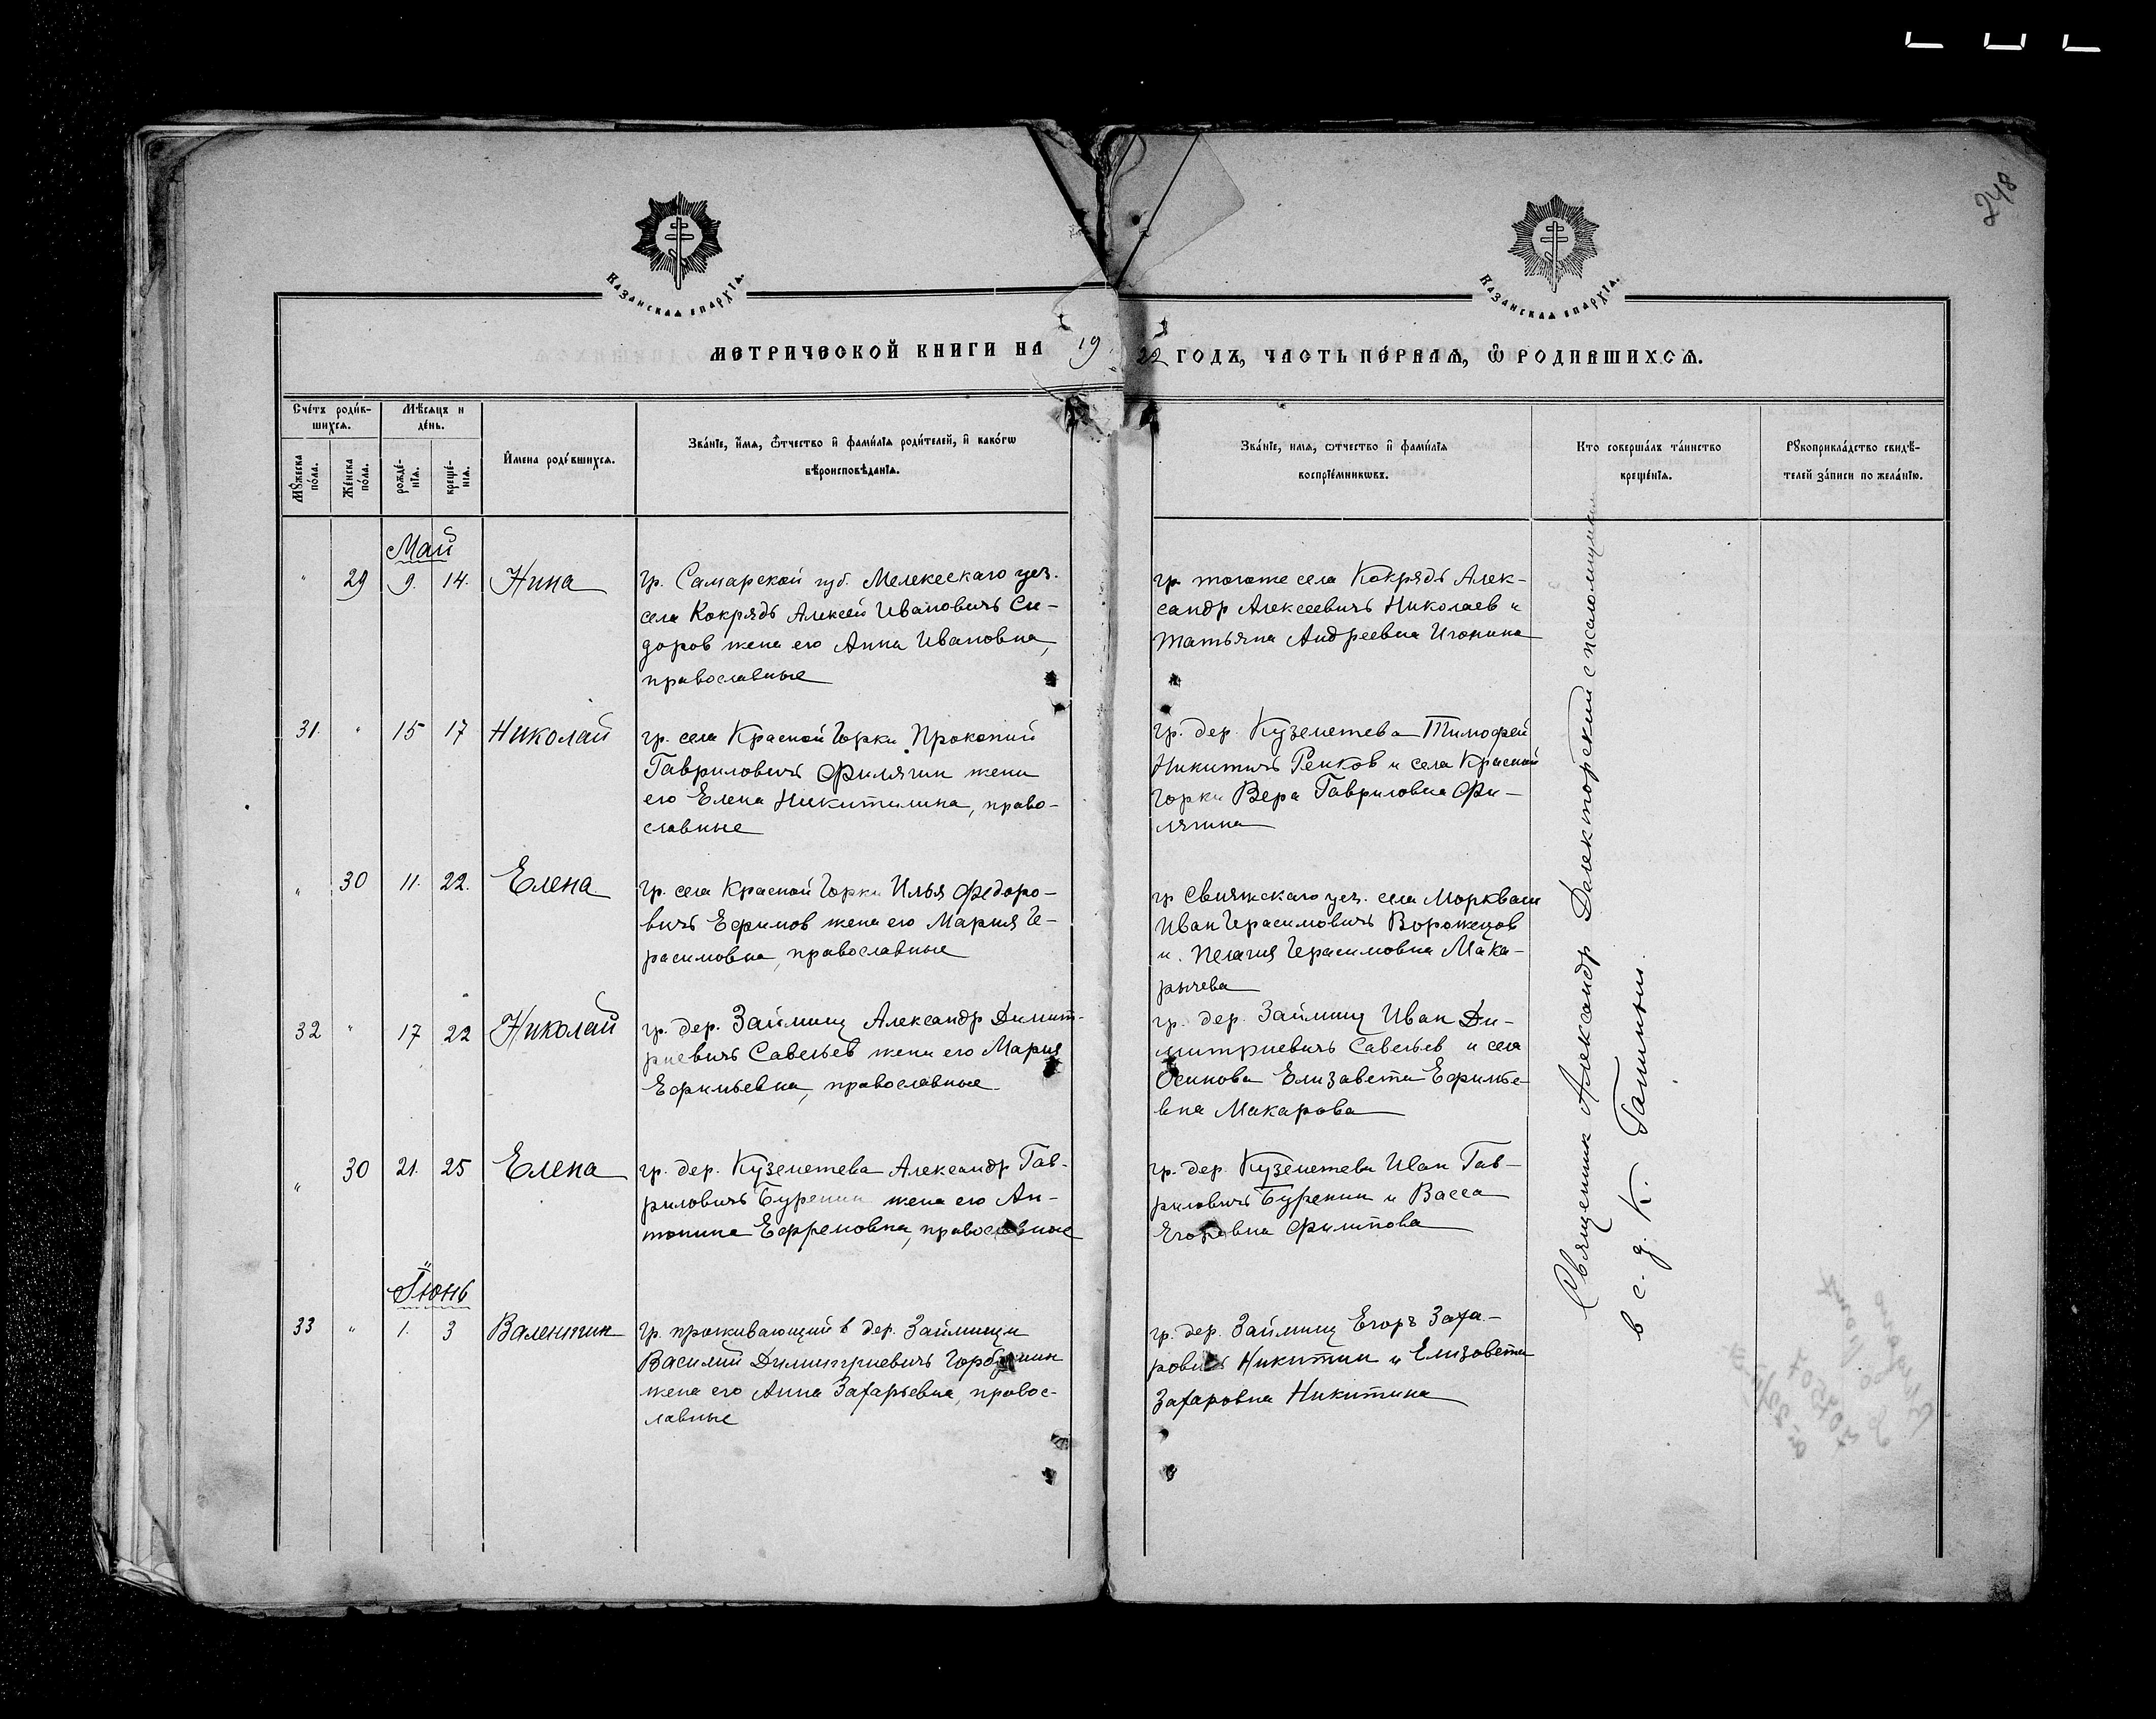 248
Казанская епархїа.
Казанская епархїа.
МЕТРИЧЕСКОЙ КНИГИ НА 19
22 ГОДЪ, ЧАСТЬ ПЕРВАЯ, Ѽ РОДИВШИХСЯ.
Сче́тъ роди́в-
шихся.
Мѣсяцъ и
де́нь.
Мꙋ́жеска
по́ла.
Же́нска
по́ла.
рожде́-
нїя.
креще́-
нїя.
И́мена роди́вшихся.
Зва́нїе, и́мя, ѻ҆́тчество и҆ фами́лїя роди́телей, и҆ како́гѡ
вѣроисповѣ́данїя.
Зва́нїе, имя, ѻтчество и҆ фами́лїя
воспрїе́мникѡвъ.
Кто соверша́лъ та́инство
креще́нїя.
Рꙋкоприкла́дство свидѣ́-
телей за́писи по жела́нїю.
Май
" 29 9. 14. Нина
гр. Самарской губ. Мелекескаго уез.
села Кокрядь Алексей Ивановичъ Си-
доров жена его Анна Ивановна,
православные
гр. тогоже села Кокрядь Алек-
сандр Алексеевичъ Николаев и
Татьяна Андреевна Игонина
31. " 15 17 Николай
гр. села Красной Горки Прокопий
Гаврилович Филягин жена
его Елена Никитилина, право-
славные
гр. дер. Куземетева Тимофей
Никитичъ Репков и села Красной
Горки Вера Гавриловна Фи-
лягина
" 30 11. 22. Елена
гр. села Красной Горки Илья Федоро-
вичъ Ефимов жена его Мария Ге-
расимовна, православные
гр. Свияжскаго уез. села Моркваши
Иван Герасимовичъ Ворожецов
и. Пелагия Герасимовна Мака-
рычева
32 " 17 22 Николай
гр. дер. Займищ Александр Димит-
риевичъ Савельев жена его Мария
Ефимьевна, православные
гр. дер. Займищ Иван Ди-
митриевичъ Савельев и села
Осинова Елизавета Ефимье-
вна Макарова
" 30 21. 25 Елена
гр. дер. Куземетева Александр Гав-
риловичъ Буренин жена его Ан-
тонина Ефремовна, православные
гр. дер. Куземетева Иван Гав-
риловичъ Буренин и Васса
Егоровна Филипова
Iюнь
33 " 1. 3 Валентин
гр. проживающий в дер. Займищи
Василий Димитриевичъ Горбунин
жена его Анна Захарьевна, правос-
лавные
гр. дер. Займищ Егоръ Заха-
ровичъ Никитин и Елизавета
Захаровна Никитина
Священник Александр Далекторский с псаломщиком
в с. д. К. Галиным